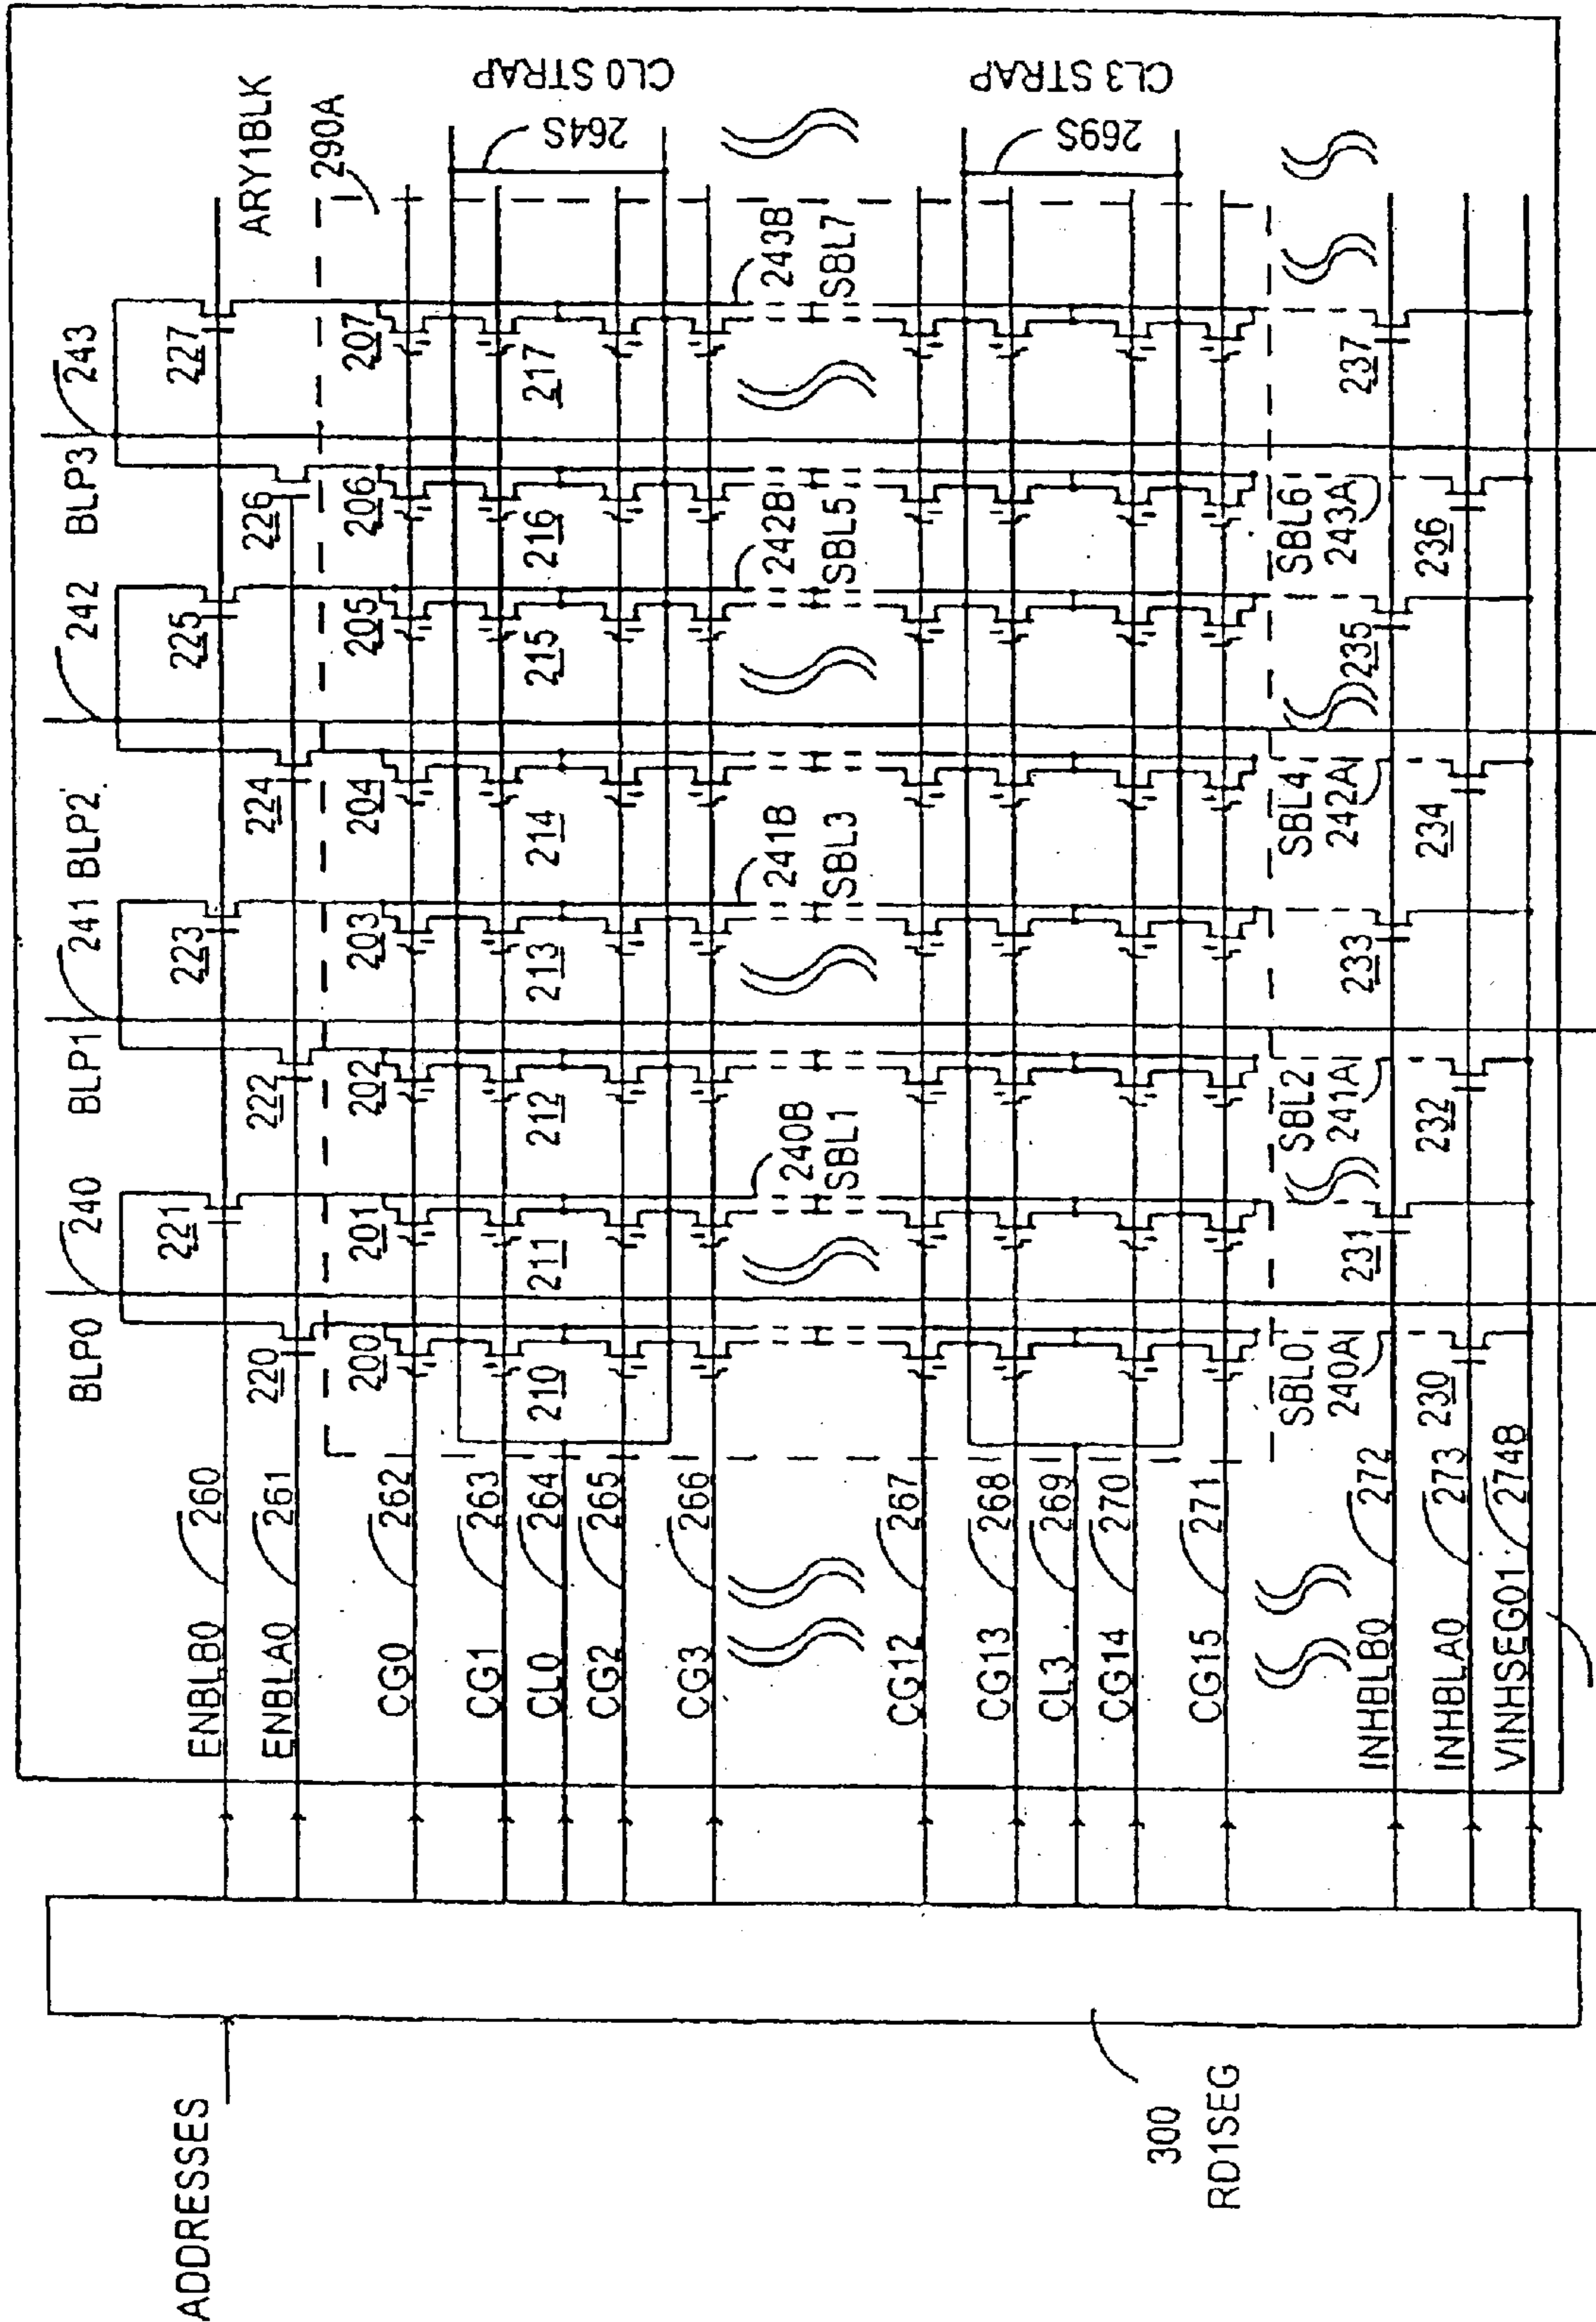 ADDRESSES
300
RD1SEG
ENBLB0 260
ENBLA0 261
CG0 262
CG1 263
CL0 264
CG2 265
CG3 266
CG12 267
CG13 268
CL3 269
CG14 270
CG15 271
INHBLB0 272
INHBLA0 273
VINHSEG01 274B
BLP0 240
BLP1 241
BLP2 242
BLP3 243
220 221 222 223 224 225 226 227
ARY1BLK
290A
200 201 202 203 204 205 206 207
210 211 212 213 214 215 216 217
240B
SBL1
241B
SBL3
242B
SBL5
243B
SBL7
SBL0
240A
SBL2
241A
SBL4
242A
SBL6
243A
231 233 235 237
230 232 234 236
264S
CL0 STRAP
269S
CL3 STRAP